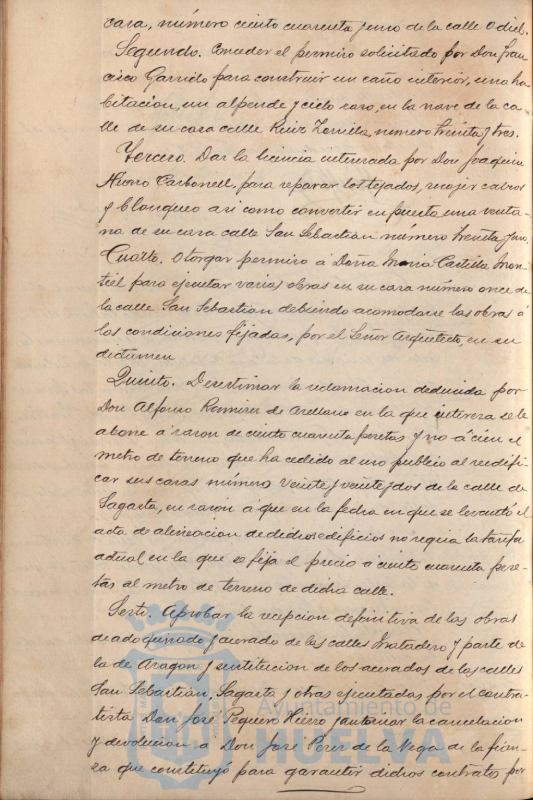 casa, número ciento cuarenta y uno de la calle Odiel.
Segundo. Conceder el permiso solicitado por Don Fran
cisco Garrido para construir un caño interior, una ha
bitacion, un alpende y cielo raso, en la nave de la ca
lle de su casa calle Ruiz Zorrilla, número treinta y tres.
Tercero. Dar la licencia interesada por Don Joaquin
Hierro Carbonell, para reparar los tejados, y
y blanqueo asi como convertir en puerta una venta
na de su casa calle San Sebastian número treinta y uno.
Cuarto. Otorgar permiso á Doña Maria Castilla Mon
tiel para ejecutar varias obras en su casa número once de
la calle San Sebastian debiendo acomodarse las obras á
las condiciones fijadas, por el Señor Arquitecto en su
dictamen
Quinto. Desestimar la reclamacion deducida por
Don Alfonso Ramirez de Arellano en la que interesa se le
abone á razon de ciento cuarenta pesetas y no á cien el
metro de terreno que ha cedido al uso publico al reedifi
car sus casas número veinte y veinte y dos de la calle de
Sagasta, en razon á que en la fecha en que se levantó el
acta de alineacion de dichos edificios no regia la tarifa
actual en la que se fija el precio á ciento cuarenta pese
tas al metro de terreno de dicha calle.
Sesto. Aprobar la recepcion definitiva de las obras
de adoquinado y acerado de las calles Matadero y parte de
la de Aragon y sustitucion de los acerados de las calles
San Sebastian, Sagasta y otras ejecutadas por el contra
tista Don José Peguero Hierro y autorizar la cancelacion
y devolucion a Don José Perez de la Vega de la fian
za que constituyó para garantir dichos contratos por
Ayuntamiento de
HUELVA